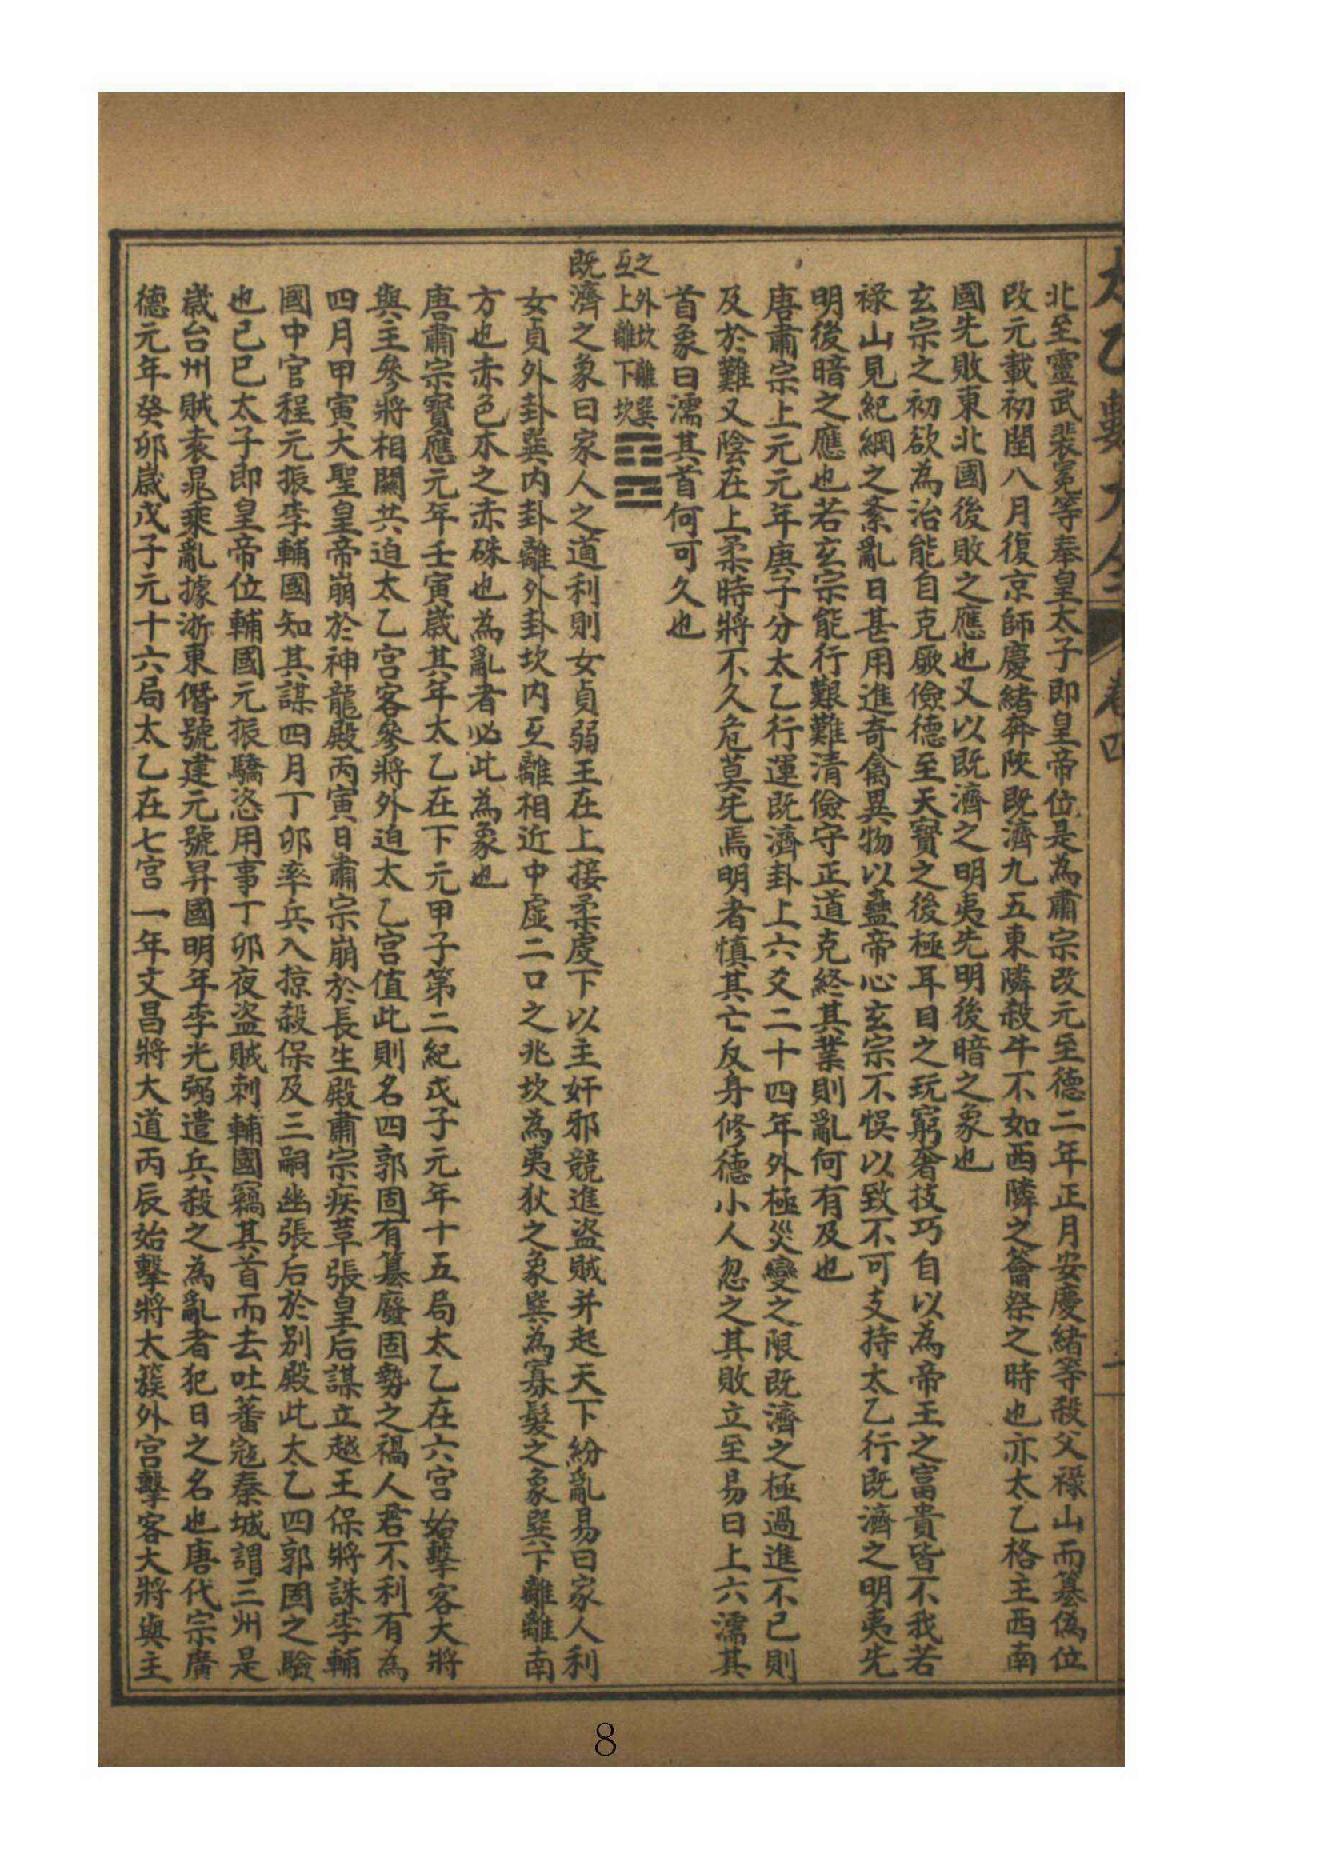 太乙數大全 卷四 一
北至靈武裴冕等奉皇太子即皇帝位是為肅宗改元至德二年正月安慶緒等殺父祿山而篡偽位
改元載初閏八月復京師慶緒奔陜既濟九五東隣殺牛不如西隣之禴祭之時也亦太乙格主西南
國先敗東北國後敗之應也又以既濟之明夷先明後暗之象也
玄宗之初欲為治能自克厥儉德至天寶之後極耳目之玩窮奢技巧自以為帝王之富貴皆不我若
祿山見紀綱之紊亂日甚用進奇禽異物以蠱帝心玄宗不悞以致不可支持太乙行既濟之明夷先
明後暗之應也若玄宗能行艱難清儉守正道克終其業則亂何有及也
唐肅宗上元元年庚子分太乙行運既濟卦上六爻二十四年外極災變之限既濟之極過進不已則
及於難又陰在上柔時將不久危莫先焉明者慎其亡反身修德小人忽之其敗立至易曰上六濡其
首象曰濡其首何可久也
之外坎離巽
互上離下坎
既濟之象曰家人之道利則女貞弱王在上接柔虔下以主奸邪競進盜賊并起天下紛亂易曰家人利
女貞外卦巽内卦離外卦坎内互離相近中虛二口之兆坎為夷狄之象巽為寡髮之象巽下離離南
方也赤色木之赤硃也為亂者必此為象也
唐肅宗寶應元年壬寅歲其年太乙在下元甲子第二紀戊子元年十五局太乙在六宮始擊客大將
與主參將相關共迫太乙宮客參將外迫太乙宮值此則名四郭固有篡廢固勢之禍人君不利有為
四月甲寅大聖皇帝崩於神龍殿丙寅日肅宗崩於長生殿肅宗疾草張皇后謀立越王保將誅李輔
國中官程元振李輔國知其謀四月丁卯率兵入掠殺保及三嗣幽張后於別殿此太乙四郭固之驗
也已巳太子即皇帝位輔國元振驕恣用事丁卯夜盜賊刺輔國竊其首而去吐蕃寇秦城謂三州是
歲台州賊袁晁乘亂據浙東僭號建元號昇國明年李光弼遣兵殺之為亂者犯日之名也唐代宗廣
德元年癸卯歲戊子元十六局太乙在七宮一年文昌將大道丙辰始擊將太簇外宮擊客大將與主
8